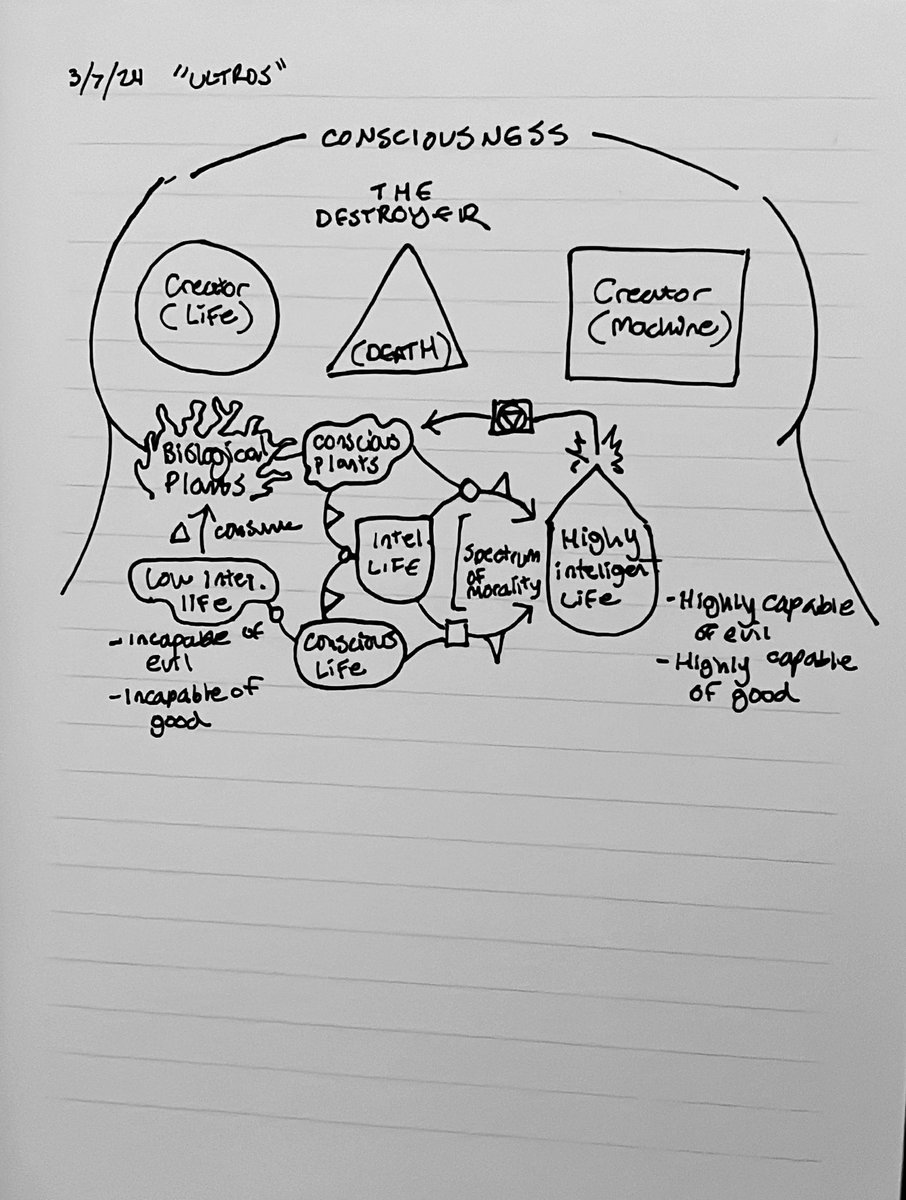 3/7/24 "ULTROS"
CONSCIOUSNESS
THE
DESTROYER
Creator
(Life)
(DEATH)
Creator
(Machine)
Biological
Plants
conscious
plants
consume
Low inter.
life
- Incapable of
evil
- Incapable of
good
Intel.
LIFE
conscious
Life
Spectrum
of
morality
Highly
inteligent
Life
- Highly capable
of evil
- Highly capable
of good